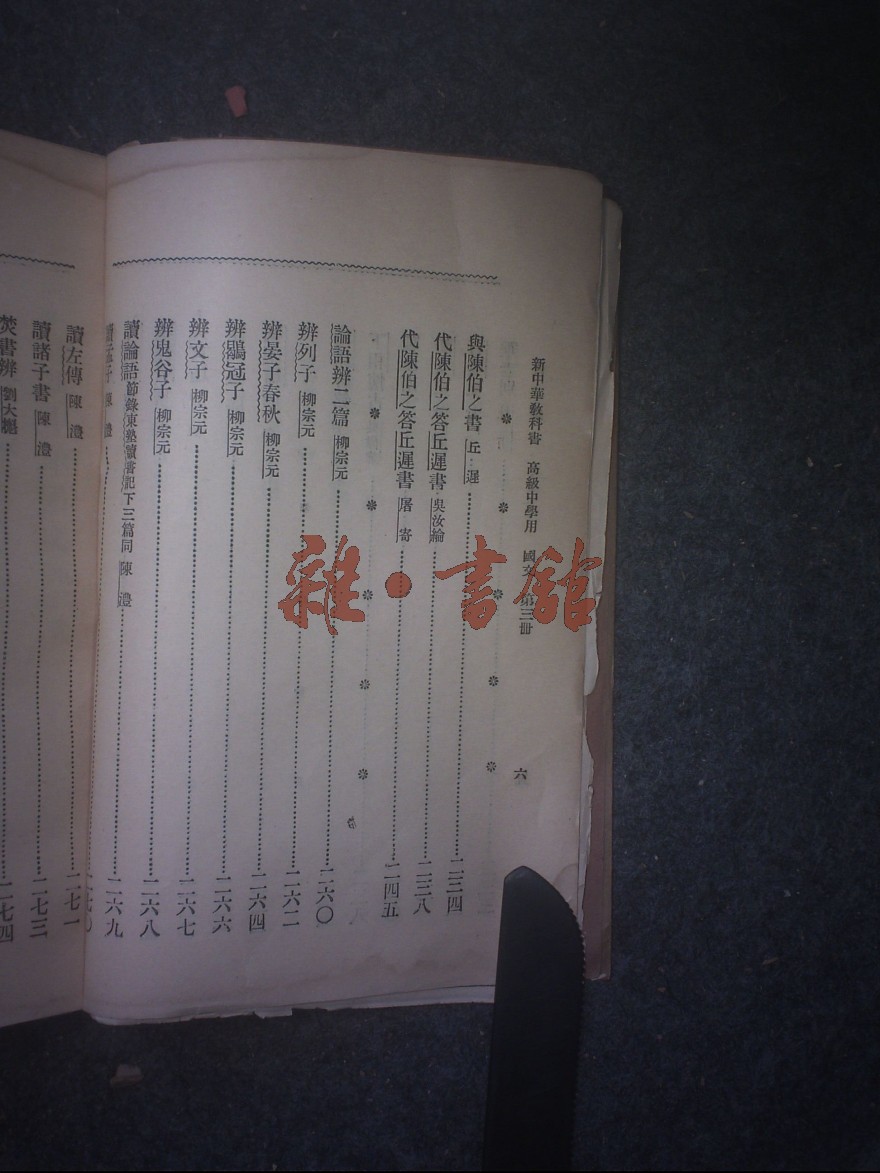 新中華敎科書 高級中學用 國文 第三冊
六
與陳伯之書 丘遲 二三四
代陳伯之答丘遲書 吳汝綸 二三八
代陳伯之答丘遲書 屠寄 二四五
論語辨二篇 柳宗元 二六〇
辨列子 柳宗元 二六二
辨晏子春秋 柳宗元 二六四
辨鶡冠子 柳宗元 二六六
辨文子 柳宗元 二六七
辨鬼谷子 柳宗元 二六八
讀論語 節錄東塾讀書記下三篇同 陳澧 二六九
子 陳澧 二七〇
讀左傳 陳澧 二七一
讀諸子書 陳澧 二七三
焚書辨 劉大櫆 二七四
雜·書館